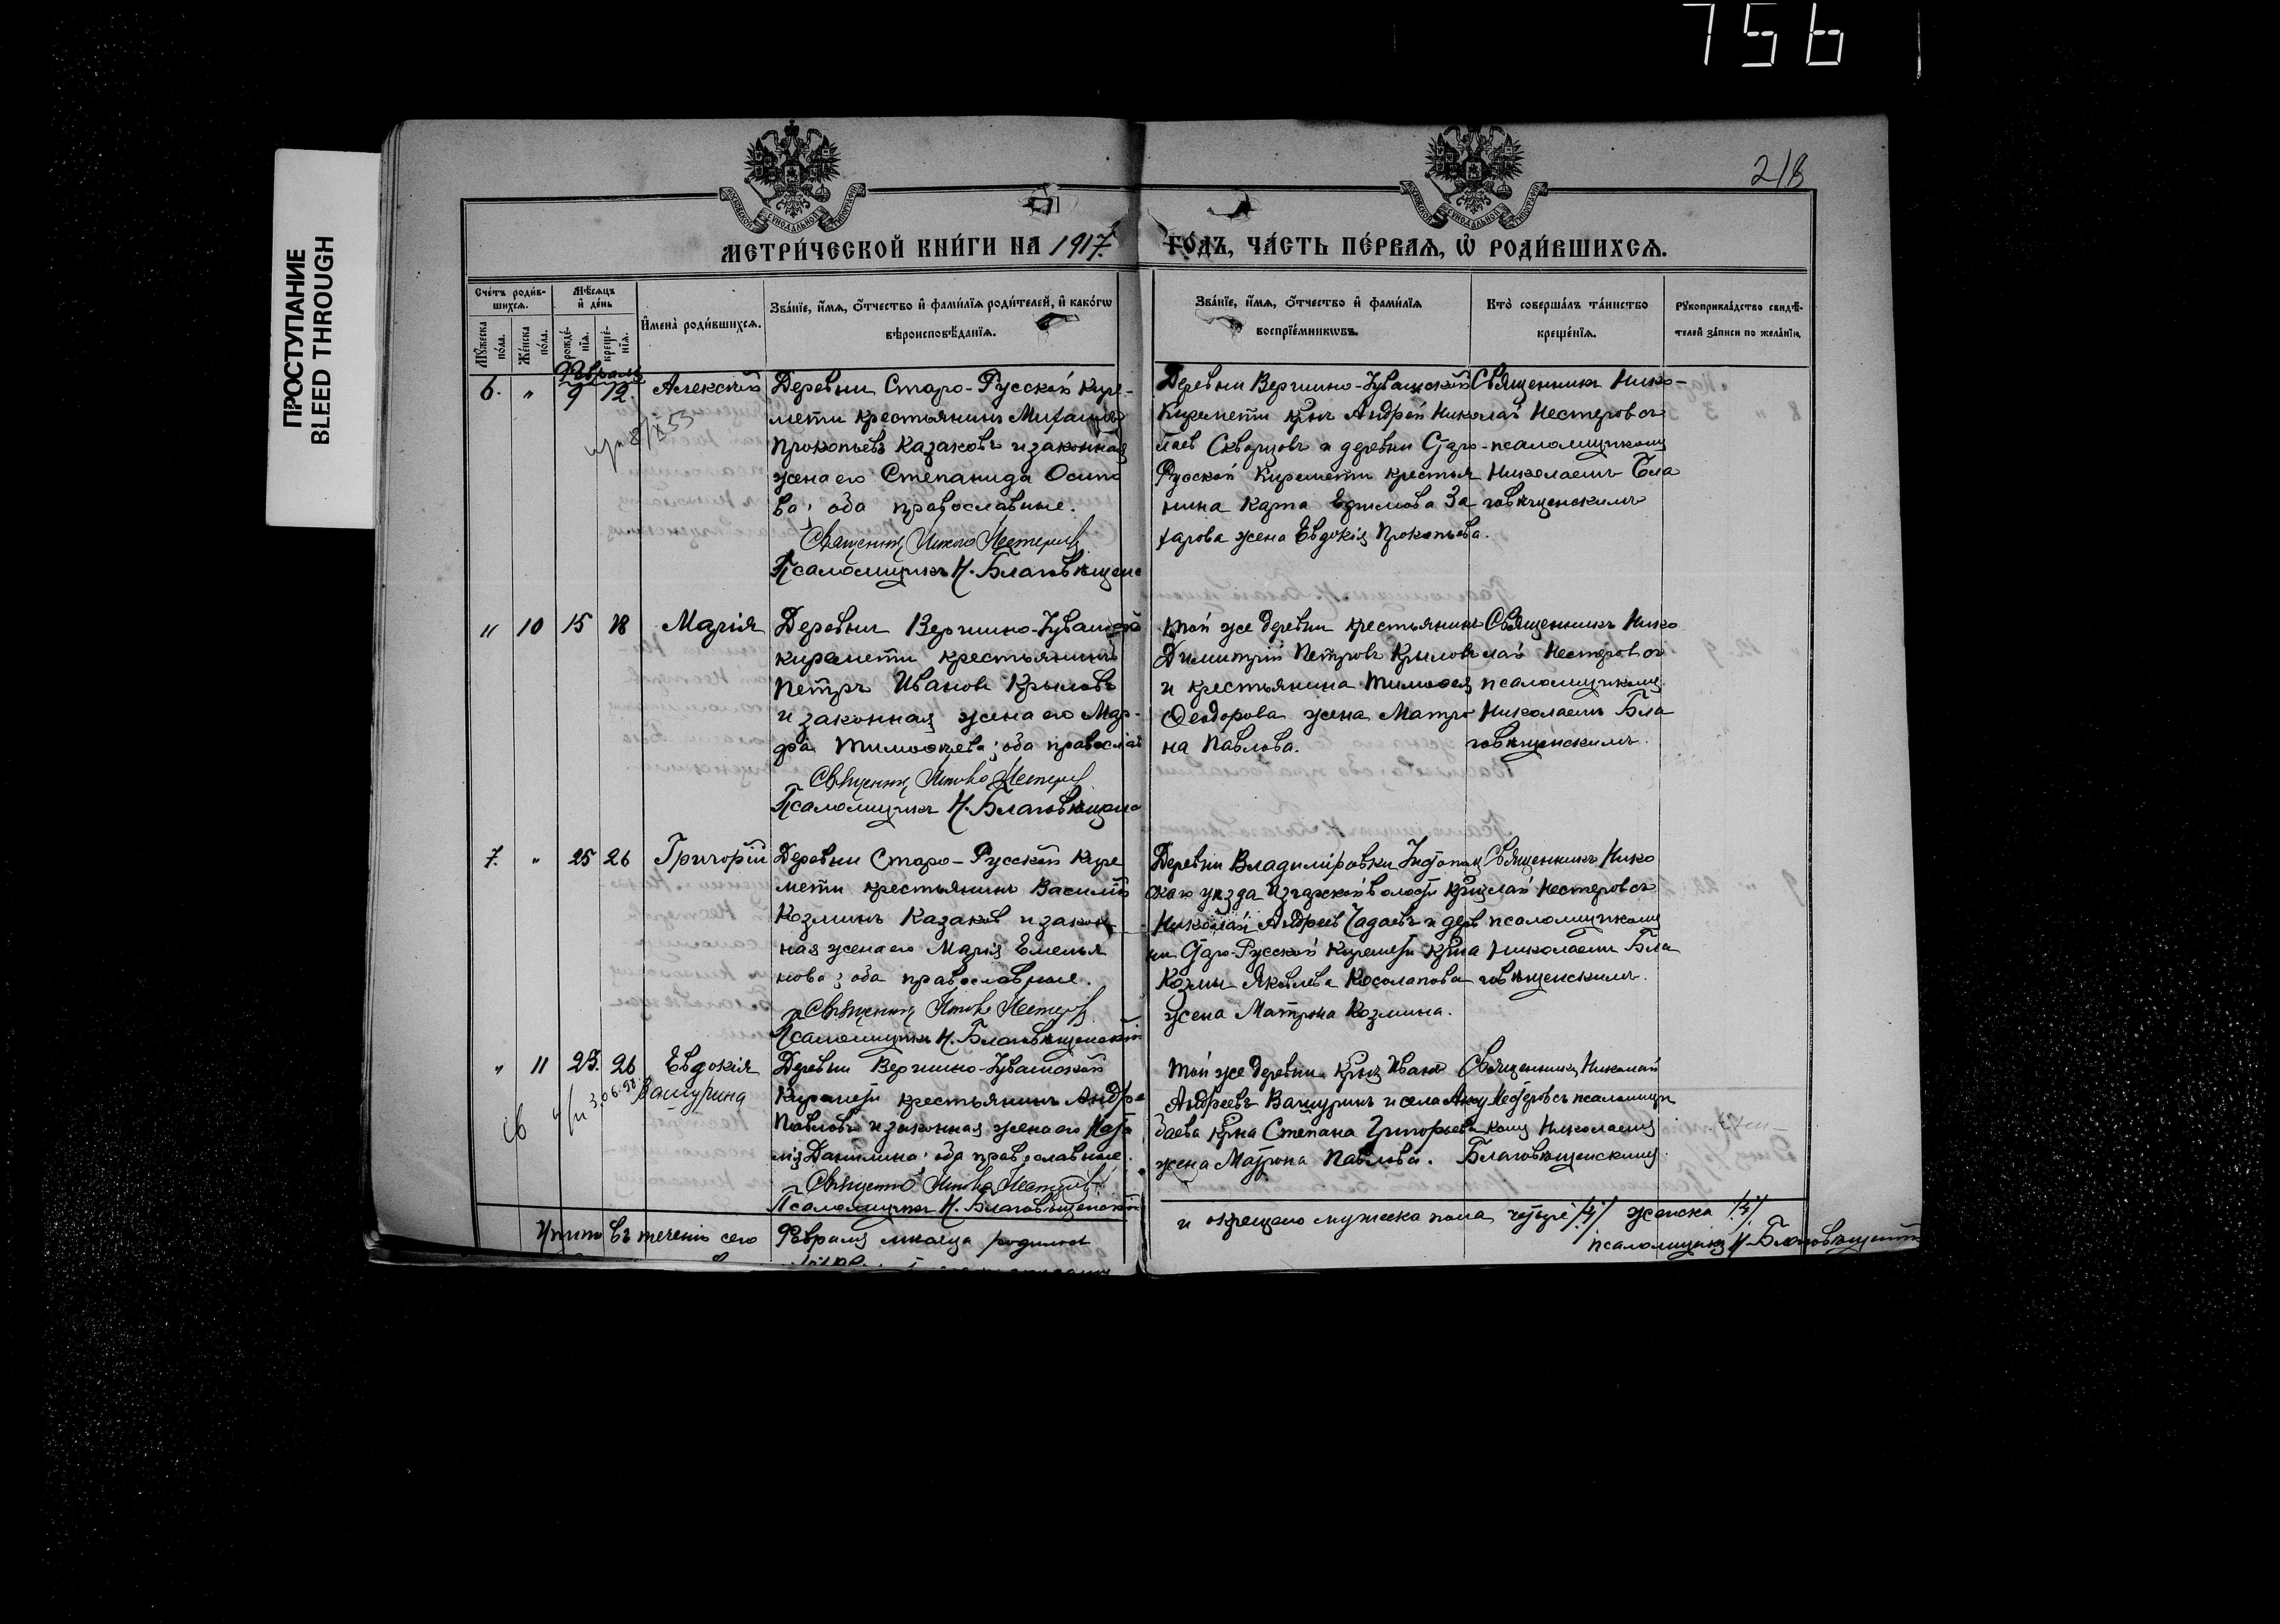 756
ПРОСТУПАНИЕ
BLEED THROUGH
218
МЕТРИ́ЧЕСКОЙ КНИ́ГИ НА 1917 ГО́ДЪ, ЧА́СТЬ ПЕ́РВАѦ, Ѡ҆ РОДИ́ВШИХСѦ.
Сче́тъ роди́в-
шихсѧ.
Мꙋ́жеска по́ла.
Же́нска по́ла.
Мѣ́сѧцъ и҆ де́нь
рожде́-
нїѧ.
креще́-
нїѧ.
И҆мена̀ роди́вшихсѧ.
Зва́нїе, и҆́мѧ, ѻ҆́тчество и҆ фами́лїѧ роди́телей, и҆ како́гѡ
вѣроисповѣ́данїѧ.
Зва́нїе, и҆́мѧ, ѻ҆́тчество и҆ фами́лїѧ
воспрїе́мникѡвъ.
Кто̀ соверша́лъ та́инство
креще́нїѧ.
Рꙋкоприкла́дство свидѣ́-
телей за́писи по жела́нїю.
Февраль
6. " 9 12. Алексѣй
Деревни Старо-Русской Кире-
мети крестьянинъ Михаилъ
Прокопьевъ Казаковъ и законная
жена его Степанида Осипо
ва; оба православные.
Священник Никола Нестеров
Псаломщикъ Н. Благовѣщенс
Деревни Вершино-Чувашской
Киремети крнъ Андрей Нико
лаев Скворцовъ и деревни Старо-
Русской Киремети крестья
нина Карпа Ефимова За
харова жена Евдокія Прокопьева.
Священникъ Нико-
лай Нестеровъ съ
псаломщикомъ
Николаемъ Бла
говѣщенскимъ
" 10 15 18 Марія
Деревни Вершино-Чувашской
киремети крестьянинъ
Петръ Ивановъ Крыловъ
и законная жена его Мар-
фа Тимоѳеева; оба православ
Священник Никола Нестеров
Псаломщикъ Н. Благовѣщенс
Той же деревни крестьянинъ
Димитрій Петровъ Крыловъ
и крестьянина Тимоѳея
Ѳеодорова жена Матро
на Павлова.
Священникъ Нико
лай Нестеровъ съ
псаломщикомъ
Николаемъ Бла
говѣщенскимъ.
7. " 25 26 Григорій
Деревни Старо-Русской Кире
мети крестьянинъ Василій
Козминъ Казаков и закон
ная жена его Марія Емелья
нова; оба православные.
Священник Никола Нестеров
Псаломщикъ Н. Благовѣщенскій
Деревни Владиміровки Чистополь
скаго уѣзда волости крнъ
Николай Андреев Чадаевъ и дерев
ни Старо-Русской Киремети крна
Козмы Яковлева Косолапова
жена Матрона Козмина.
Священникъ Нико
лай Нестеровъ съ
псаломщикомъ
Николаемъ Бла
говѣщенскимъ.
" 11 25. 26 Евдокія
Вашурина
Деревни Вершино-Чувашской
Киремети крестьянинъ Андре
Павловъ и законная жена его Ната
лія Данилина; оба православные.
Священник Никола Нестеров
Псаломщикъ Н. Благовѣщенскій
Той же деревни крнъ Иванъ
Андреевъ Вашуринъ и села Аксу
баева крна Степана Григорьева
жена Матрона Павлова.
Священникъ Николай
Нестеровъ съ псаломщи
комъ Николаемъ
Благовѣщенскимъ.
Итого въ теченіи сего Февраля мѣсяца родилось
и окрещено мужеска пола четыре /4/ женска
псаломщикъ Н. Благовѣщенскій